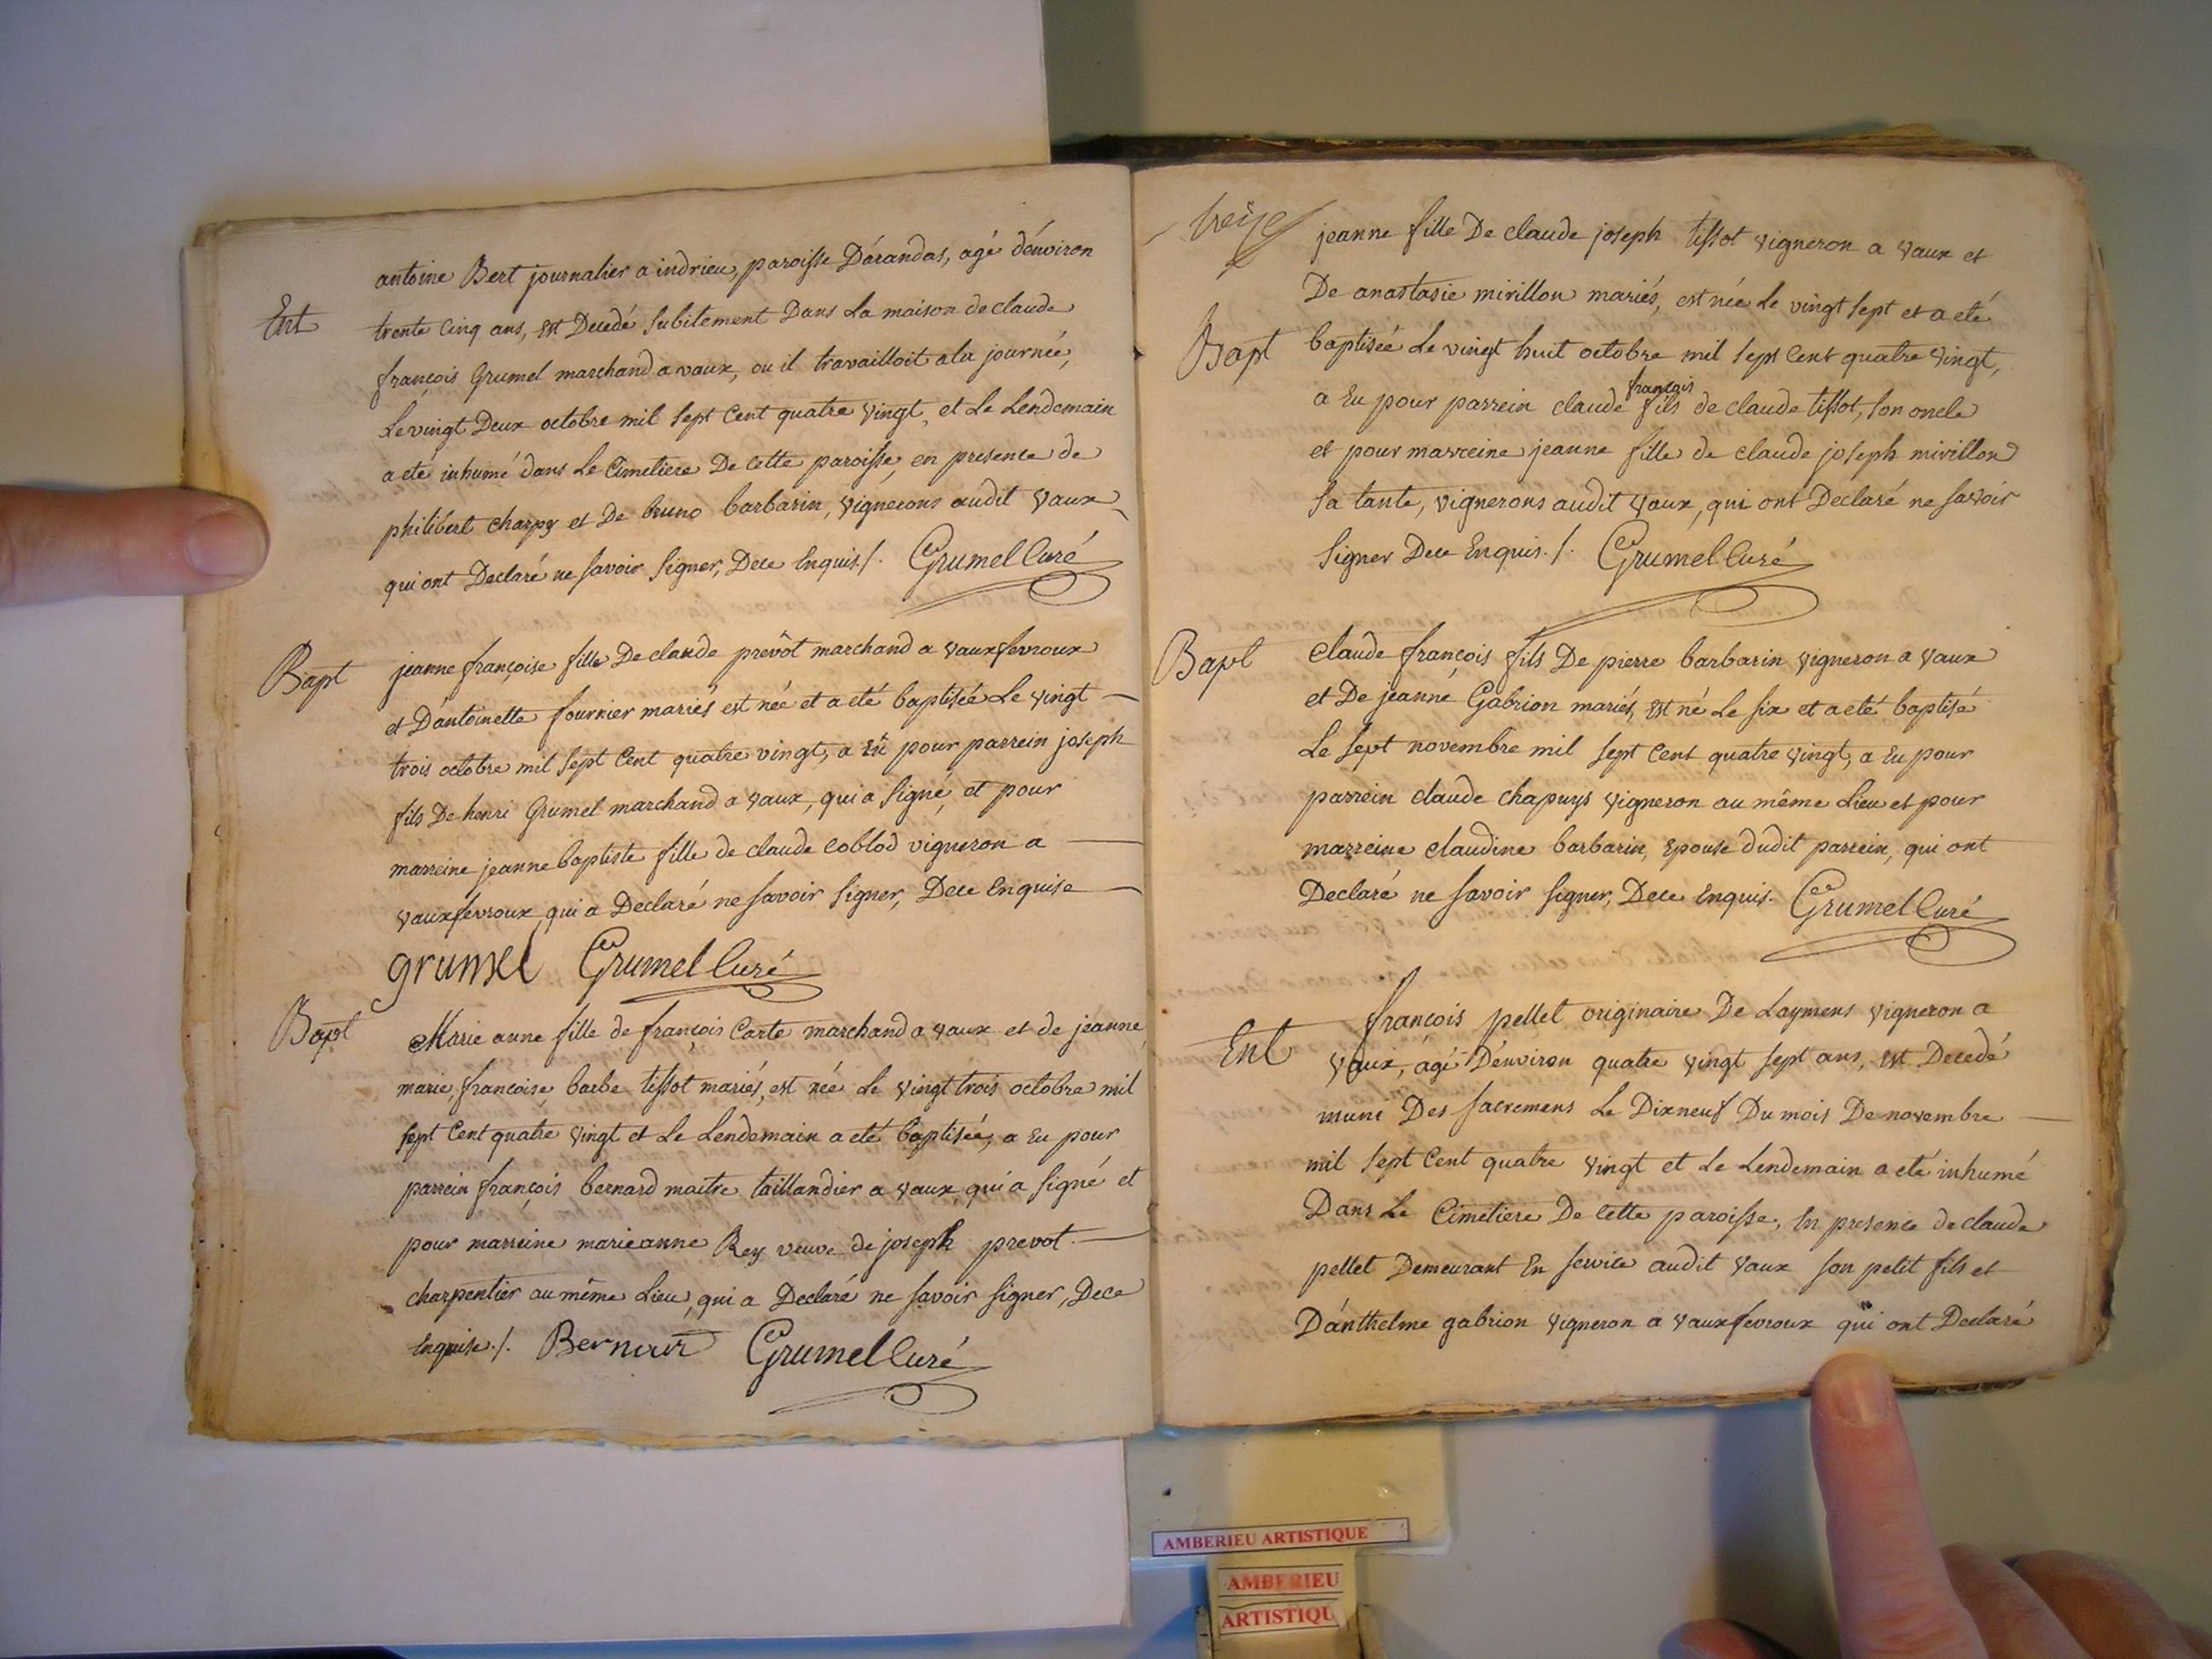 antoine Bert journalier a indrieu, paroisse D'arandas, agé d'environ
Ent
trente cinq ans, est Decedé subitement Dans La maison de claude
françois Grumel marchand a vaux, ou il travailloit a la journée,
Le vingt Deux octobre mil sept Cent quatre vingt, et Le Lendemain
a eté inhumé dans Le Cimetiere De cette paroisse, en presence de
philibert charpy et De bruno barbarin, vignerons audit vaux,
qui ont Declaré ne savoir signer, Dece Enquis./. Grumel Curé
Bapt
jeanne françoise fille De claude prevôt marchand a vauxfevroux
et D'antoinette fournier mariés est née et a eté baptisée Le vingt
trois octobre mil sept Cent quatre vingt, a Eü pour parrein joseph
fils De henri Grumel marchand a vaux, qui a signé, et pour
marreine jeanne baptiste fille de claude coblod vigneron a
vauxfevroux qui a Declaré ne savoir signer, Dece Enquise
grumel Grumel Curé
Bapt
Marie anne fille de françois Carte marchand a vaux et de jeanne
marie, francoise, barbe tissot mariés, est née Le vingt trois octobre mil
sept Cent quatre vingt et Le Lendemain a eté baptisée, a Eu pour
parrein françois bernard maitre taillandier a vaux, qui a signé et
pour marreine marieanne Rey veuve de joseph prevot
charpentier au même Lieu, qui a Declaré ne savoir signer, Dece
Enquise./. Bernard Grumel Curé
treize
jeanne fille De claude joseph tissot vigneron a vaux et
De anastasie mirillon mariés, est née Le vingt sept et a eté
Bapt
baptisée Le vingt huit octobre mil sept Cent quatre vingt,
françois
a Eu pour parrein claude fils de claude tissot, son oncle
et pour marreine jeanne fille de claude joseph mirillon
sa tante, vignerons audit vaux, qui ont Declaré ne savoir
signer Dece Enquis./. Grumel Curé
Bapt
claude françois fils De pierre barbarin vigneron a vaux
et De jeanne Gabrion mariés, est né Le six et a eté baptisé
Le sept novembre mil sept Cent quatre vingt, a Eu pour
parrein claude chapuys vigneron au même Lieu et pour
marreine claudine barbarin, Epouse dudit parrein, qui ont
Declaré ne savoir signer, Dece Enquis. Grumel Curé
françois pellet originaire De Laymens vigneron a
Ent
vaux, agé D'environ quatre vingt sept ans, est Decedé
muni Des sacremens Le Dixneuf Du mois De novembre
mil sept Cent quatre vingt et Le Lendemain a eté inhumé
Dans Le Cimetiere De cette paroisse, En presence de claude
pellet Demeurant En service audit vaux son petit fils et
D'anthelme gabrion vigneron a vauxfevroux qui ont Declaré
AMBERIEU ARTISTIQUE
AMBERIEU
ARTISTIQU